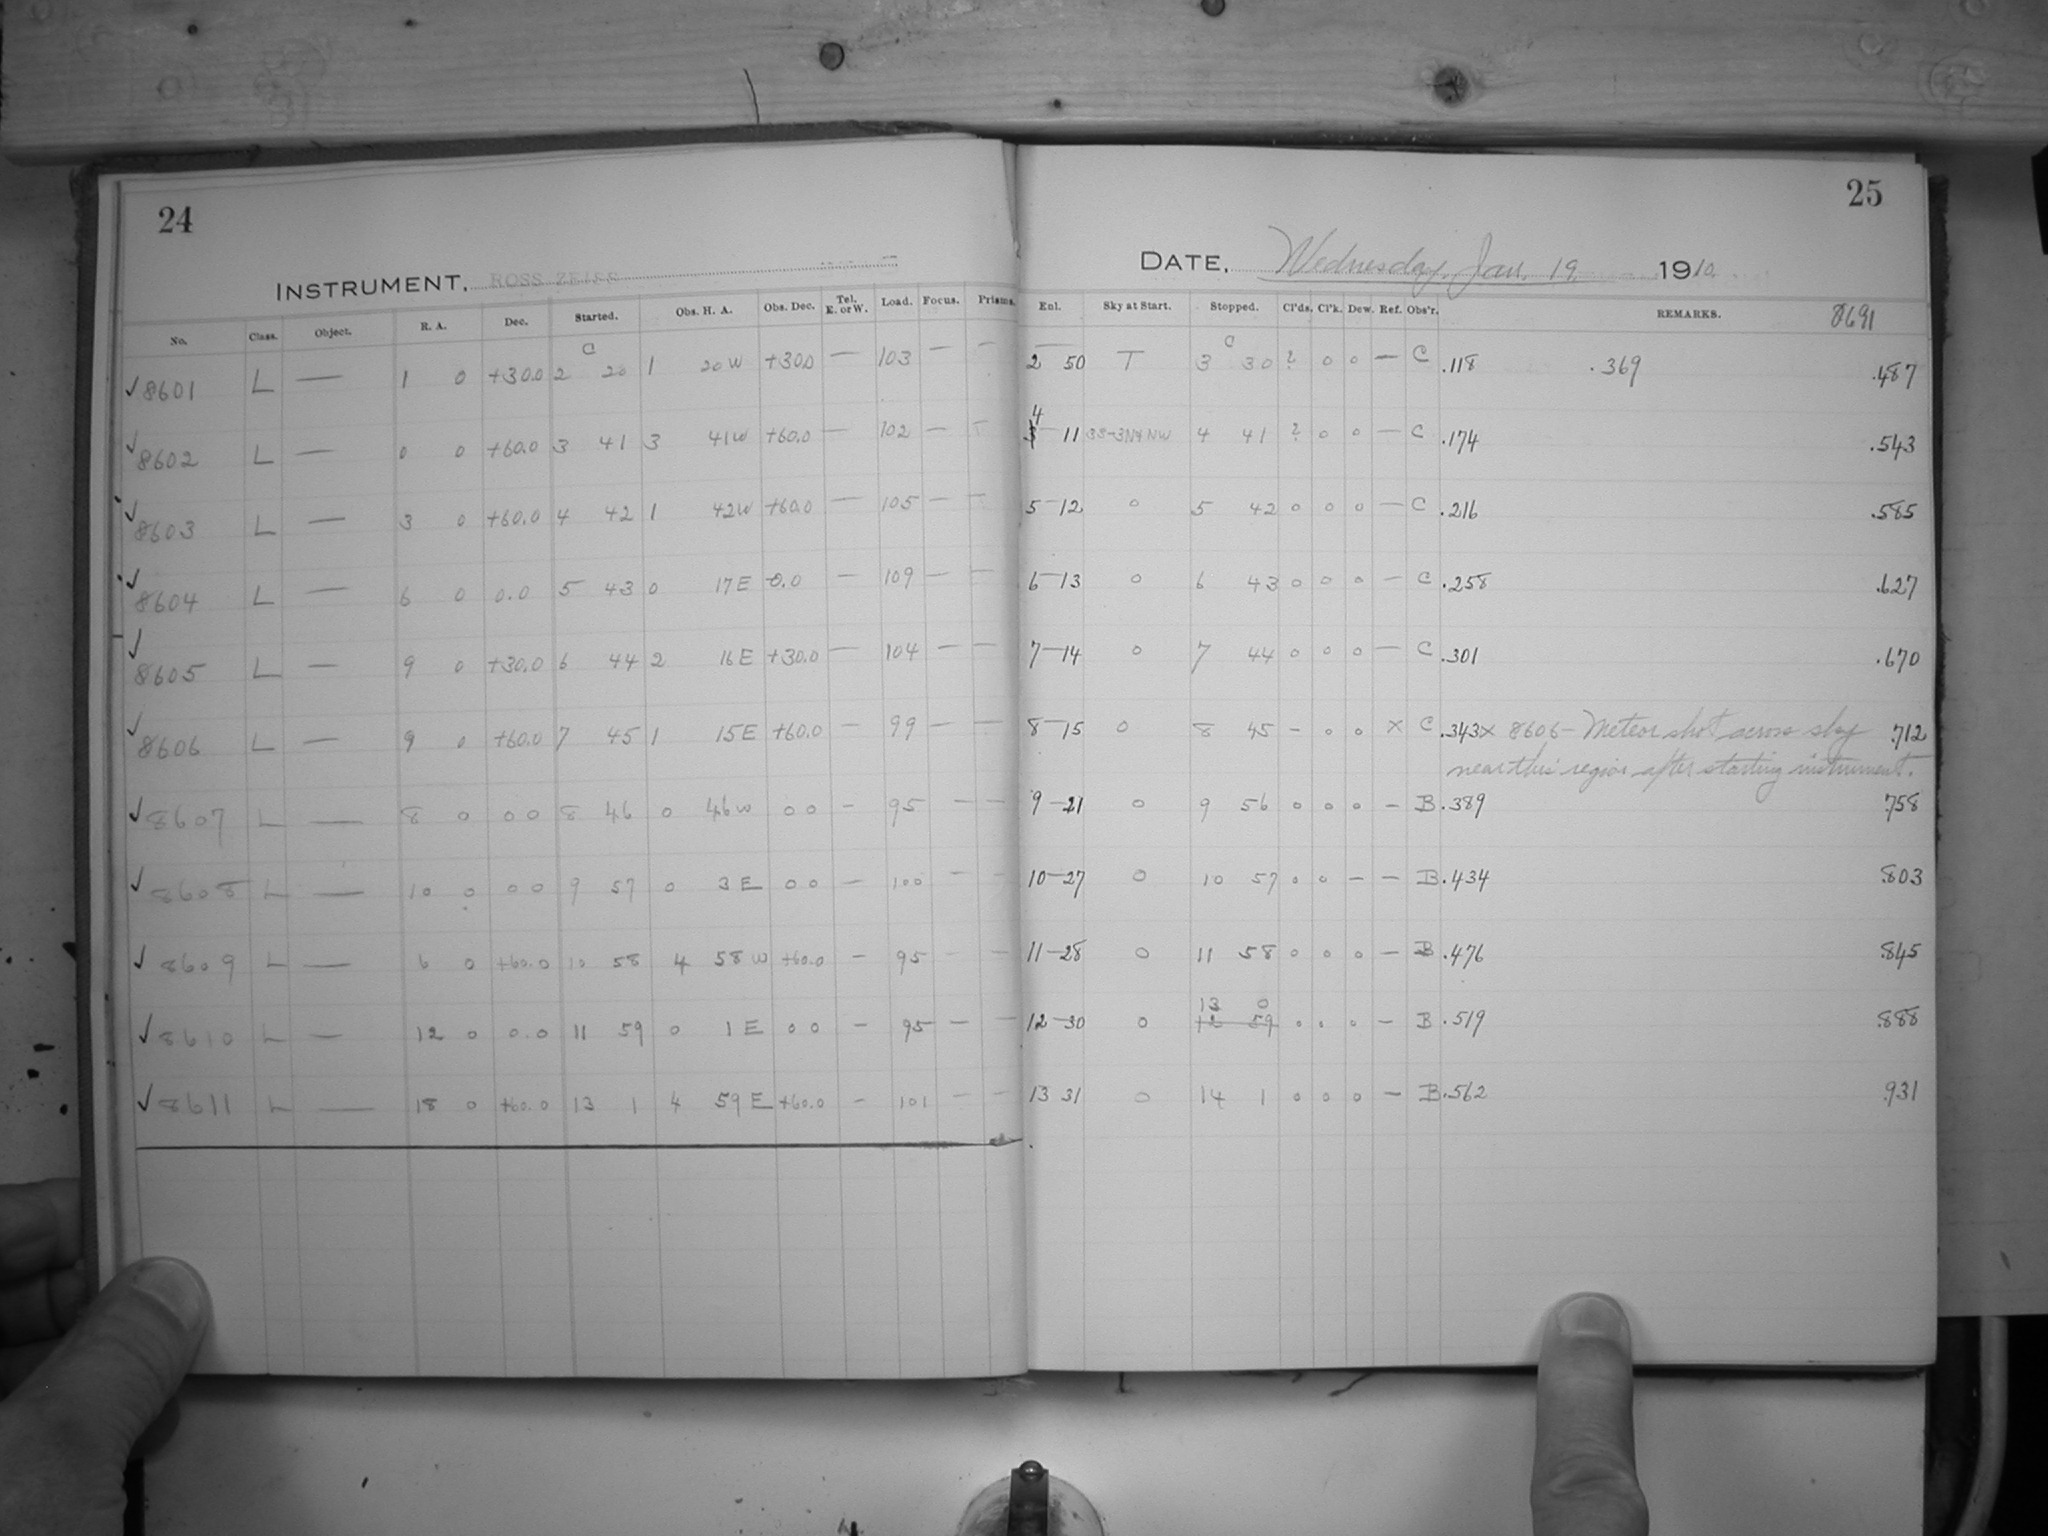 24
INSTRUMENT, ROSS ZEISS
No. Class. Object. R. A. Dec. Started. Obs. H. A. Obs. Dec. Tel. E. or W. Load. Focus. Prisms.
C
✓8601 L — 1 0 +30.0 2 20 1 20 W +30.0 — 103 — —
✓8602 L — 0 0 +60.0 3 41 3 41 W +60.0 — 102 — —
✓8603 L — 3 0 +60.0 4 42 1 42 W +60.0 — 105 — —
✓8604 L — 6 0 0.0 5 43 0 17 E 0.0 — 109 — —
✓8605 L — 9 0 +30.0 6 44 2 16 E +30.0 — 104 — —
✓8606 L — 9 0 +60.0 7 45 1 15 E +60.0 — 99 — —
✓8607 L — 8 0 0 0 8 46 0 46 W 0 0 — 95 — —
✓8608 L — 10 0 0 0 9 57 0 3 E 0 0 — 100 — —
✓8609 L — 6 0 +60.0 10 58 4 58 W +60.0 — 95 — —
✓8610 L — 12 0 0.0 11 59 0 1 E 0 0 — 95 — —
✓8611 L — 18 0 +60.0 13 1 4 59 E +60.0 — 101 — —
25
DATE, Wednesday, Jan. 19 1910
Enl. Sky at Start. Stopped. Cl'ds. Cl'k. Dew. Ref. Obs'r. REMARKS. 8691
C
2 50 T 3 30 ? 0 0 — C .118 .369 .487
4
11 4 41 ? 0 0 — C .174 .543
5—12 0 5 42 0 0 0 — C .216 .585
6—13 0 6 43 0 0 0 — C .258 .627
7—14 0 7 44 0 0 0 — C .301 .670
8—15 0 8 45 — 0 0 X C .343 x 8606 – Meteor shot across sky .712
near this region after starting instrument.
9—21 0 9 56 0 0 0 — B .389 .758
10—27 0 10 57 0 0 — — B .434 .803
11—28 0 11 58 0 0 0 — B .476 .845
13 0
12—30 0 12 59 0 0 0 — B .519 .888
13 31 0 14 1 0 0 0 — B .562 .931